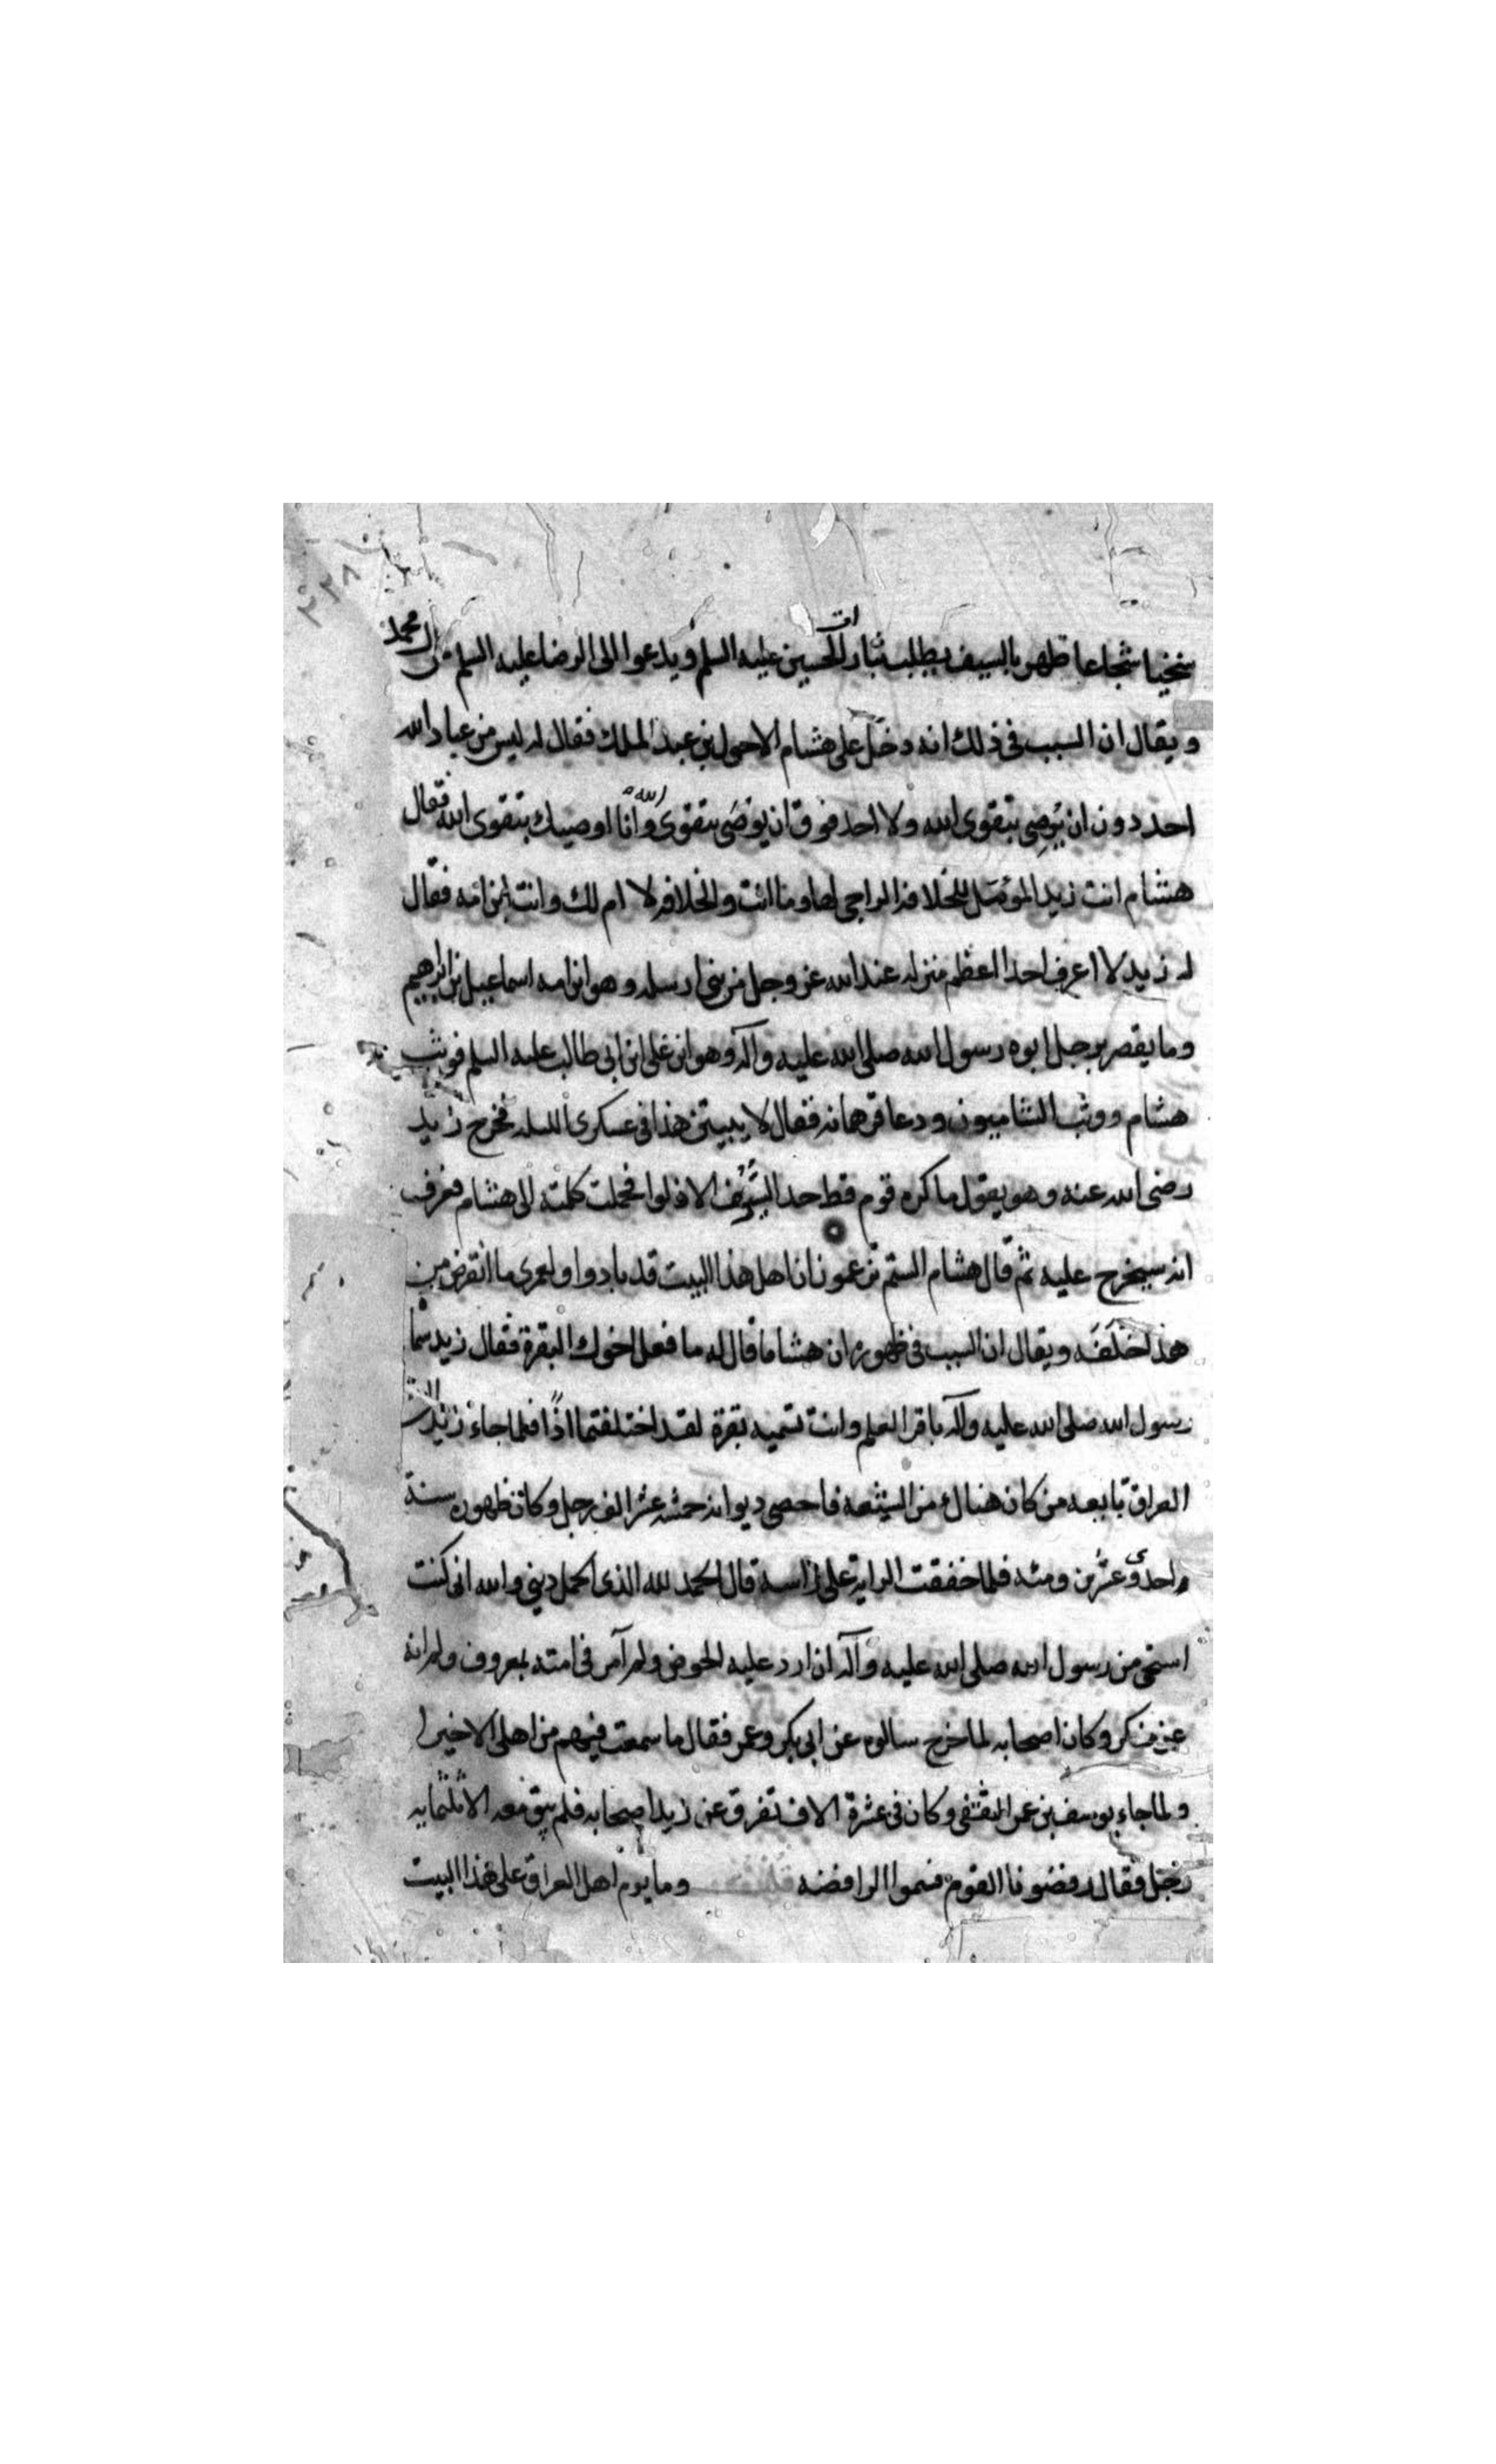 ٢٢٨
سخيا شجاعا ظهر بالسيف يطلب بثارات الحسين عليه السلم ويدعوا الى الرضا عليه السلم من آل محمد
ويقال ان السبب في ذلك انه دخل على هشام الاحول بن عبد الملك فقال له ليس من عباد الله
احد دون ان يُوصِي بتقوى الله ولا احد فوق ان يوصَى بتقوى الله وانا اوصيك بتقوى الله فقال
هشام انت زيد المؤمّل للخلافة الراجي لها وما انت والخلافة لا ام لك وانت ابن امة فقال
له زيد لا اعرف احدا اعظم منزلة عند الله عز وجل من نبي ارسله وهو ابن امة اسماعيل بن ابراهيم
وما يقصر برجل ابوه رسول الله صلى الله عليه وآله وهو ابن علي ابن ابي طالب عليه السلم فوثب
هشام ووثب الشاميون ودعا قهرمانه فقال لا يبيتن هذا في عسكري الليلة فخرج زيد
رضي الله عنه وهو يقول ما كره قوم قط حد السُّيُوف الا ذلوا فحملت كلمته الى هشام فعرف
انه سيخرج عليه ثم قال هشام الستم تزعمون ان اهل هذا البيت قد بادوا ولعمري ما انقرض من
هذا خَلَفَه ويقال ان السبب في ظهوره ان هشاما قال له ما فعل اخوك البقرة فقال زيد سماه
رسول الله صلى الله عليه وآله باقر العلم وانت تسميه بقرة لقد اختلفتما اذًا فلما جاء زيد الى
العراق تابعه من كان هنالك من الشيعه فاحصى ديوانه خمسة عشر الف رجل وكان ظهوره سنة
احدى وعشرين ومئة فلما خفقت الراية على راسه قال الحمد لله الذي اكمل ديني والله اني كنت
استحي من رسول الله صلى الله عليه وآله ان ارد عليه الحوض ولم آمر في امته بمعروف ولم انه
عن منكر وكان اصحابه لما خرج سالوه عن ابي بكر وعمر فقال ما سمعت فيهم من اهلي الا خيرا
ولما جاء يوسف بن عمر الثقفي وكان في عشرة الاف تفرق عن زيد اصحابه فلم يبق معه الا ثلثمايه
رجل فقال رفضونا القوم فسموا الرافضه وما يوم اهل العراق على هذا البيت